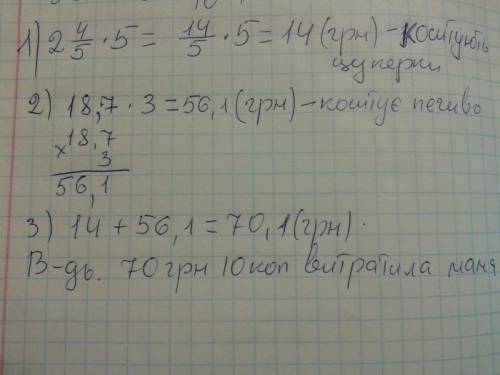 1) 2 4/5 · 5 = 14/5 · 5 = 14 (грн) - коштують
цукерки
2) 18,7 · 3 = 56,1 (грн) - коштує печиво
18,7
× 3
56,1
3) 14 + 56,1 = 70,1 (грн).
В-дь. 70 грн 10 коп витратила мама